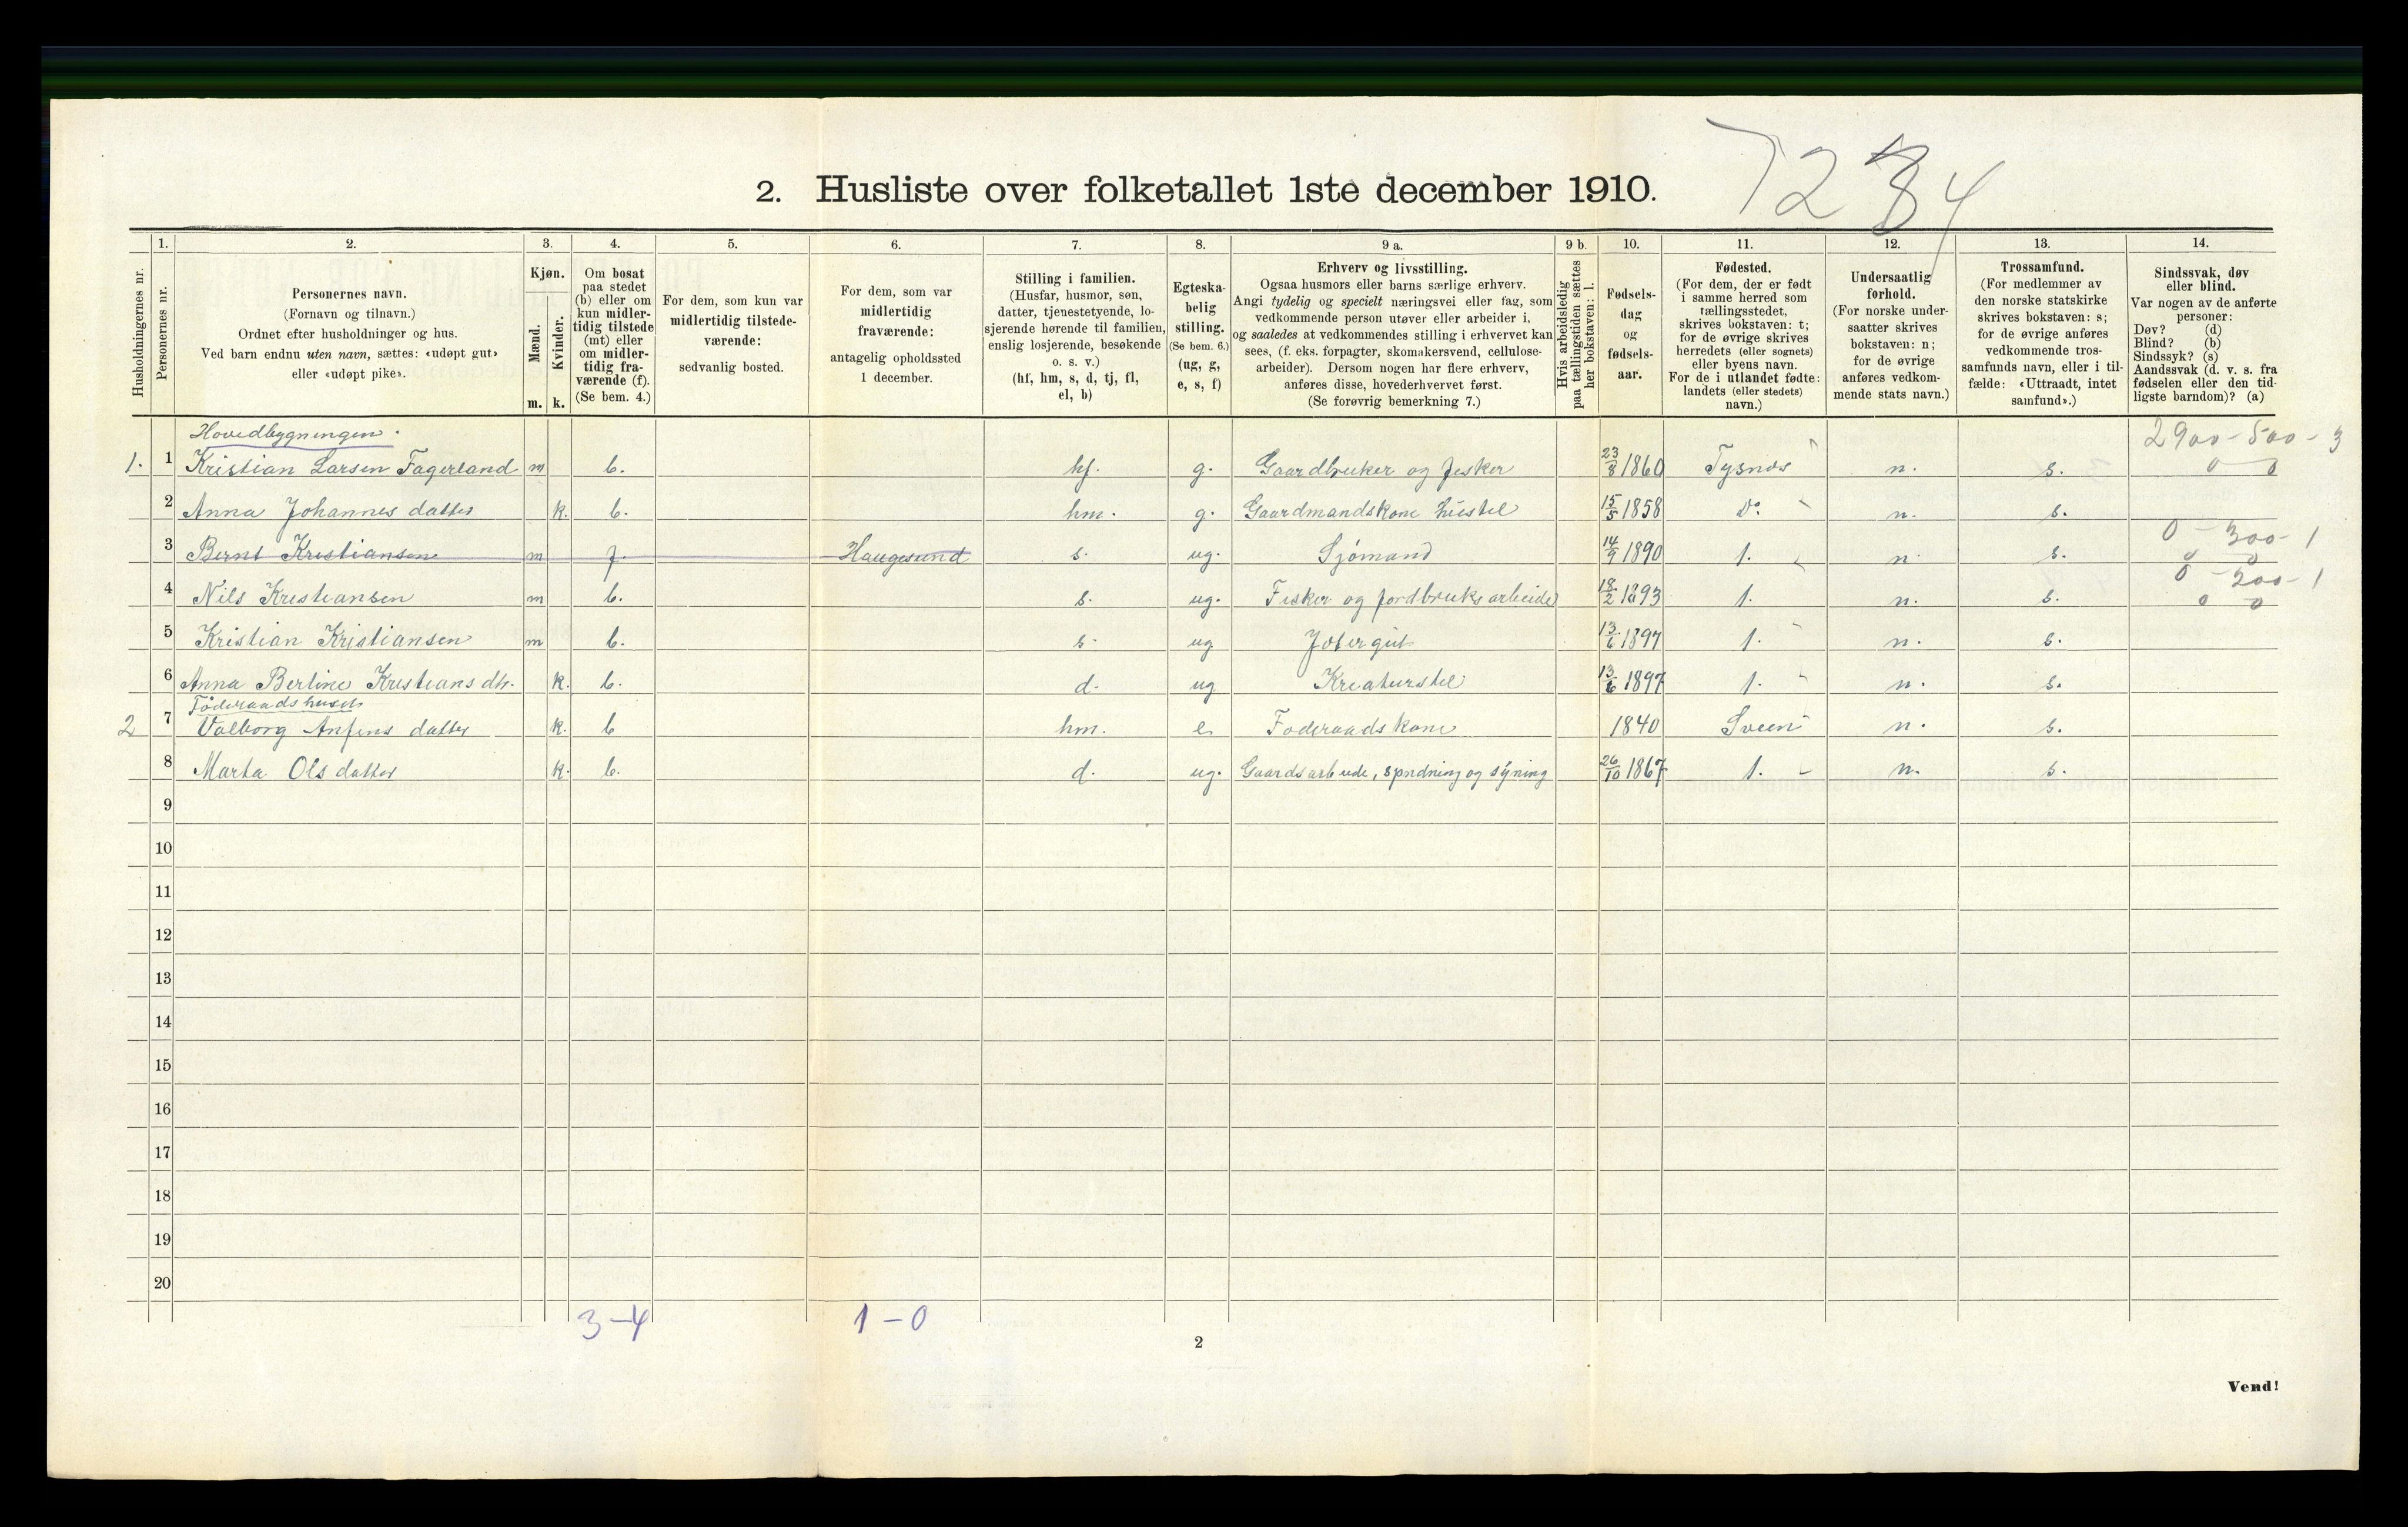 7284
2. Husliste over folketallet 1ste december 1910.
1. 2. 3. 4. 5. 6. 7. 8. 9 a. 9 b. 10. 11. 12. 13. 14.
Husholdningernes nr.
Personernes nr.
Personernes navn.
(Fornavn og tilnavn.)
Ordnet efter husholdninger og hus.
Ved barn endnu uten navn, sættes: «udøpt gut»
eller «udøpt pike».
Kjøn.
Mænd.
Kvinder.
m. k.
Om bosat
paa stedet
(b) eller om
kun midler-
tidig tilstede
(mt) eller
om midler-
tidig fra-
værende (f).
(Se bem. 4.)
For dem, som kun var
midlertidig tilstede-
værende:
sedvanlig bosted.
For dem, som var
midlertidig
fraværende:
antagelig opholdssted
1 december.
Stilling i familien.
(Husfar, husmor, søn,
datter, tjenestetyende, lo-
sjerende hørende til familien,
enslig losjerende, besøkende
o. s. v.)
(hf, hm, s, d, tj, fl,
el, b)
Egteska-
belig
stilling.
(Se bem. 6.)
(ug, g,
e, s, f)
Erhverv og livsstilling.
Ogsaa husmors eller barns særlige erhverv.
Angi tydelig og specielt næringsvei eller fag, som
vedkommende person utøver eller arbeider i,
og saaledes at vedkommendes stilling i erhvervet kan
sees, (f. eks. forpagter, skomakersvend, cellulose-
arbeider). Dersom nogen har flere erhverv,
anføres disse, hovederhvervet først.
(Se forøvrig bemerkning 7.)
Hvis arbeidsledig
paa tællingstiden sættes
her bokstaven: l.
Fødsels-
dag
og
fødsels-
aar.
Fødested.
(For dem, der er født
i samme herred som
tællingsstedet,
skrives bokstaven: t;
for de øvrige skrives
herredets (eller sognets)
eller byens navn.
For de i utlandet fødte:
landets (eller stedets)
navn.)
Undersaatlig
forhold.
(For norske under-
saatter skrives
bokstaven: n;
for de øvrige
anføres vedkom-
mende stats navn.)
Trossamfund.
(For medlemmer av
den norske statskirke
skrives bokstaven: s;
for de øvrige anføres
vedkommende tros-
samfunds navn, eller i til-
fælde: «Uttraadt, intet
samfund».)
Sindssvak, døv
eller blind.
Var nogen av de anførte
personer:
Døv? (d)
Blind? (b)
Sindssyk? (s)
Aandssvak (d. v. s. fra
fødselen eller den tid-
ligste barndom)? (a)
Hovedbygningen. 2900-500-3
1. 1 Kristian Larsen Fagerland m b. hf. g. Gaardbruker og fisker 23/8 1860 Tysnes n. s. 0 0
2 Anna Johannes datter k. b. hm. g. Gaardmandskone hustel 15/5 1858 Do. n. s.
0-300-1
3 Bernt Kristiansen m f. Haugesund s. ug. Sjömand 14/9 1890 1. n. s. 0 0
0-200-1
4 Nils Kristiansen m b. s. ug. Fisker og jordbruks arbeide 18/2 1893 1. n. s. 0 0
5 Kristian Kristiansen m b. s. ug Jætergut 13/6 1897 1. n. s.
6 Anna Berline Kristians dtr. k. b. d. ug Kreaturstel 13/6 1897 1. n. s.
Föderaadshuset
2 7 Valborg Anfins datter k. b hm. e. Foderaadskone 1840 Sveen n. s.
8 Marta Ols datter k. b. d. ug. Gaardsarbeide, spindning og syning 26/10 1867 1. n. s.
9
10
11
12
13
14
15
16
17
18
19
20
3-4 1-0
2
Vend!